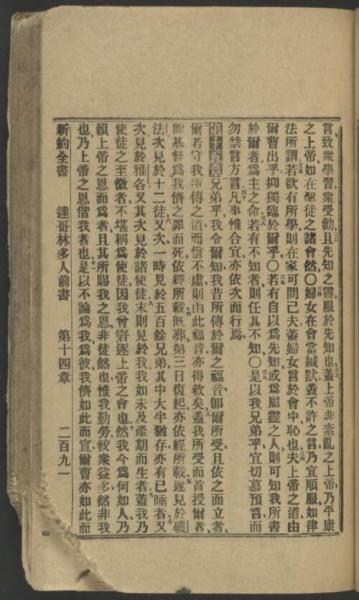 言致衆學習衆受勸且先知之靈服於先知也蓋上帝非紊亂之上帝乃平康
之上帝如在聖徒之諸會然○婦女在會當緘默蓋不許之言乃宜順服如律
法所謂若欲有所學則在家可問己夫蓋婦女言於會中恥也夫上帝之道由
爾曹出乎抑獨臨於爾乎○若有自以爲先知或爲感靈之人則可知我所書
於爾者爲主之命若有不知者則任其不知○是以我兄弟乎宜切慕預言而
勿禁言方言凡事惟合宜亦依次而行焉
兄弟乎我令爾知我昔所傳於爾之福音卽爾所受且依之而立者
爾若守我所傳之道而信不虛則由此福音亦得救矣蓋我所受而首授爾者
卽基督爲我儕之罪而死依經所載旣葬第三日復起亦依經所載遂見於磯
法次見於十二徒又次一時見於五百餘兄弟其中大半猶存亦有已睡者又
次見於雅各又其次見於諸使徒末則見於我我如未及產期而生者蓋我乃
使徒之至微者不堪稱爲使徒因我曾窘逐上帝之會也然我今爲何如人乃
賴上帝之恩而爲者且其所賜我之恩非徒然也惟我勤勞較衆益多然非我
也乃上帝之恩偕我者也是以不論爲我爲彼我儕如此而宣爾曹亦如此而
新約全書 達哥林多人前書 第十四章 二百九一